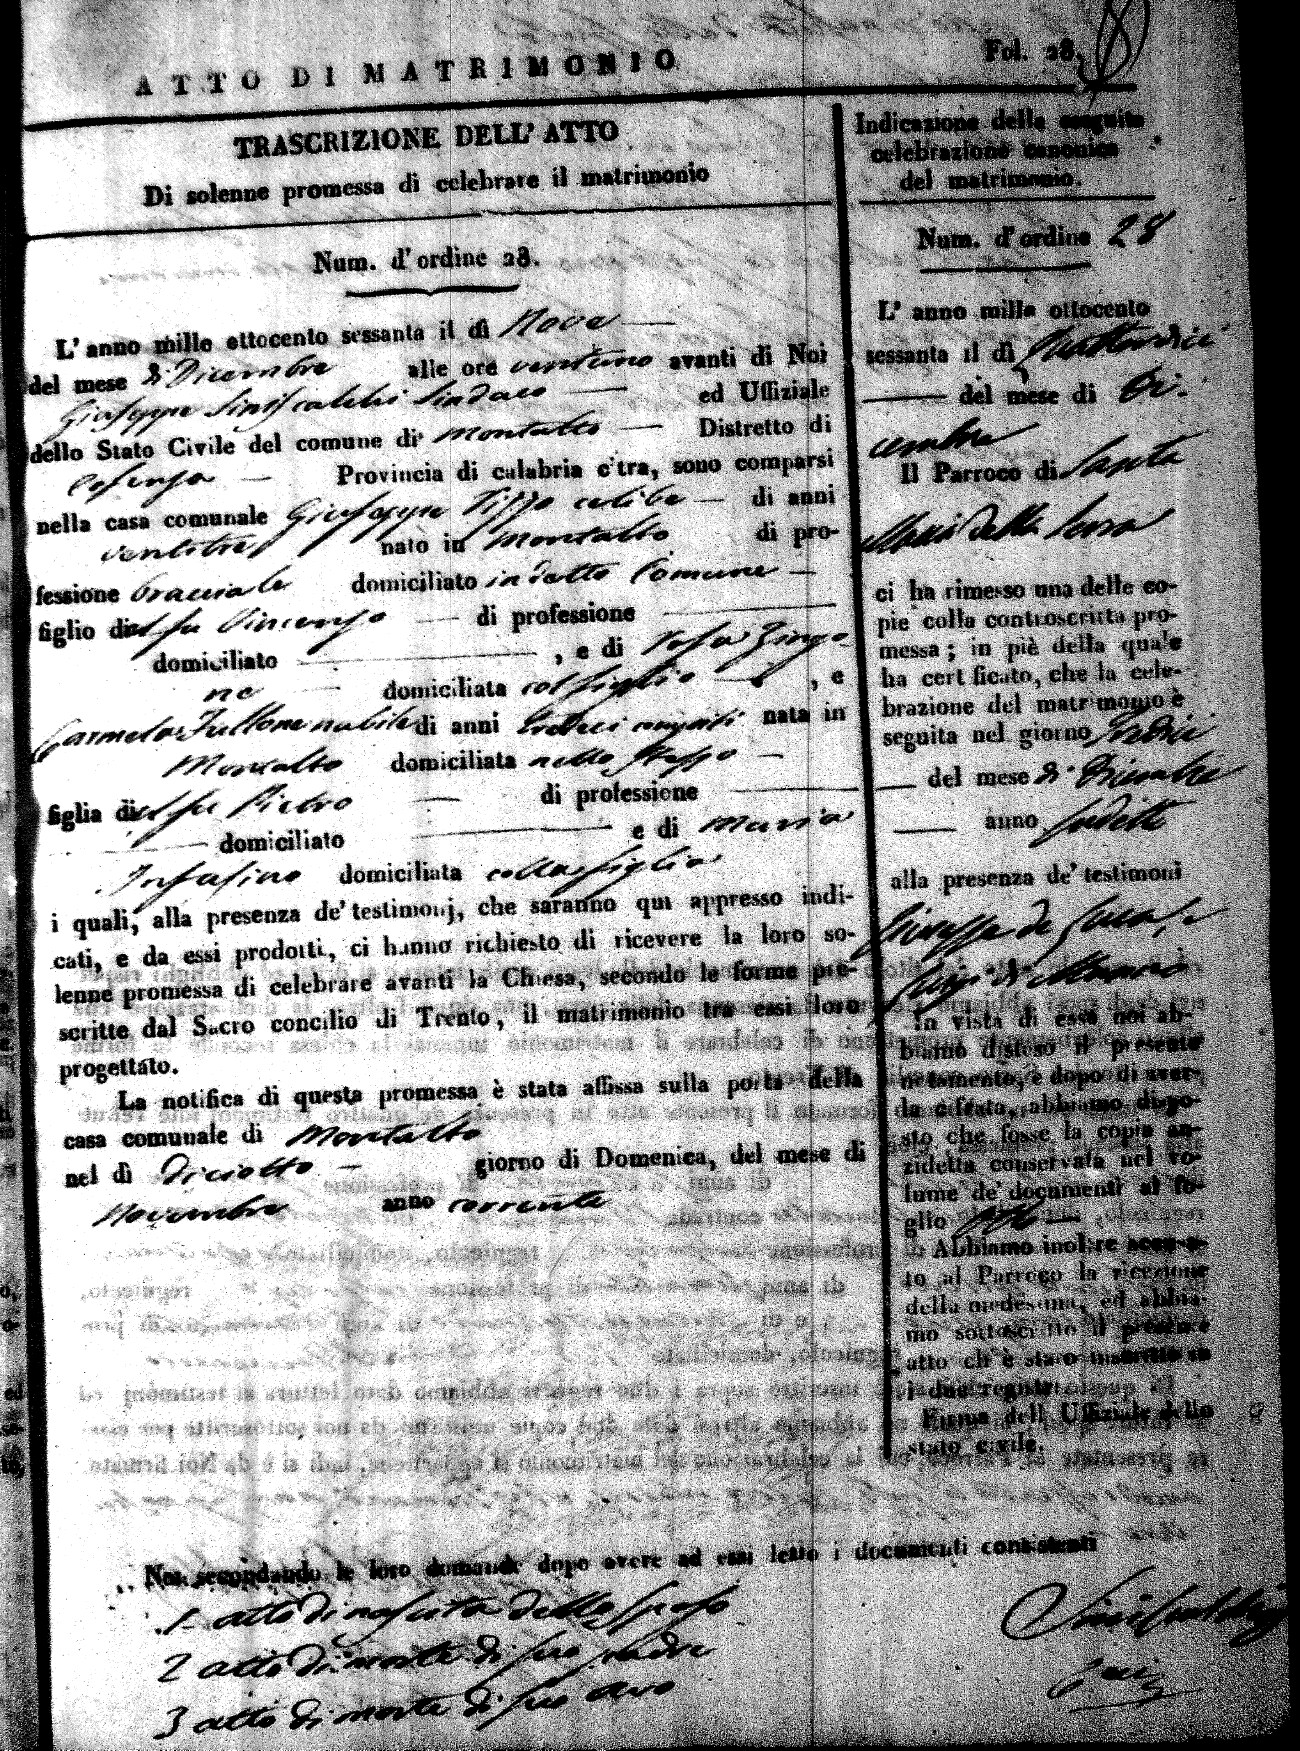 ATTO DI MATRIMONIO
Fol. 28.
TRASCRIZIONE DELL' ATTO
Di solenne promessa di celebrare il matrimonio
Num. d'ordine 28.
L' anno mille ottocento sessanta il dì Nove
del mese di Dicembre alle ore ventuno avanti di Noi
Giuseppe Siniscalchi Sindaco ed Uffiziale
dello Stato Civile del comune di Montalto Distretto di
Cosenza Provincia di calabria citra, sono comparsi
nella casa comunale Giuseppe Pizzo celibe di anni
ventitre nato in Montalto di pro-
fessione bracciale domiciliato in detto Comune
figlio del fu Vincenzo di professione
domiciliato , e di Rosa Zingo
ne domiciliata col figlio , e
Carmela Fullone nubile di anni nata in
Montalto domiciliata nello stesso
figlia del fu Pietro di professione
domiciliato e di Maria
domiciliata colla figlia
i quali, alla presenza de' testimonj, che saranno qui appresso indi-
cati, e da essi prodotti, ci hanno richiesto di ricevere la loro so-
lenne promessa di celebrare avanti la Chiesa, secondo le forme pre-
scritte dal Sacro concilio di Trento, il matrimonio tra essi loro
progettato.
La notifica di questa promessa è stata affissa sulla porta della
casa comunale di Montalto
nel dì Diciotto giorno di Domenica, del mese di
Novembre anno corrente
Noi secondando le loro domande dopo avere ad essi letto i documenti consistenti
1 atto di nascita dello sposo
2 atto di morte di suo padre
3 atto di morte di suo avo
Indicazione della seguita
celebrazione canonica
del matrimonio.
Num. d'ordine 28
L' anno mille ottocento
sessanta il dì Quattordici
del mese di Di-
cembre
Il Parroco di Santa
Maria della Serra
ci ha rimesso una delle co-
pie colla controscritta pro-
messa; in piè della quale
ha certificato, che la cele-
brazione del matrimonio è
seguita nel giorno
del mese di Dicembre
anno suddetto
alla presenza de' testimoni
Giuseppe de Luca, e
Luigi di Munno
In vista di essa noi ab-
biamo disteso il presente
notamento, e dopo di aver-
la cifrata, abbiamo dispo-
sto che fosse la copia an-
zidetta conservata nel vo-
lume de' documenti al fo-
glio
Abbiamo inoltre accusa-
to al Parroco la ricezione
della medesima, ed abbia-
mo sottoscritto il presente
atto ch' è stato inscritto su
i due registri
Firma dell Uffiziale dello
stato civile.
Siniscalchi